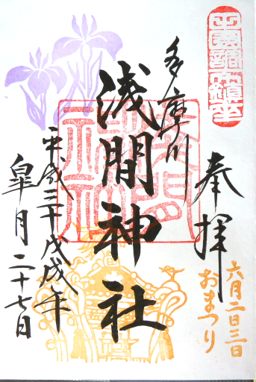 奉拝
六月二日三日
おまつり
多摩川
浅間神社
平成三十戊戌年
皐月二十七日